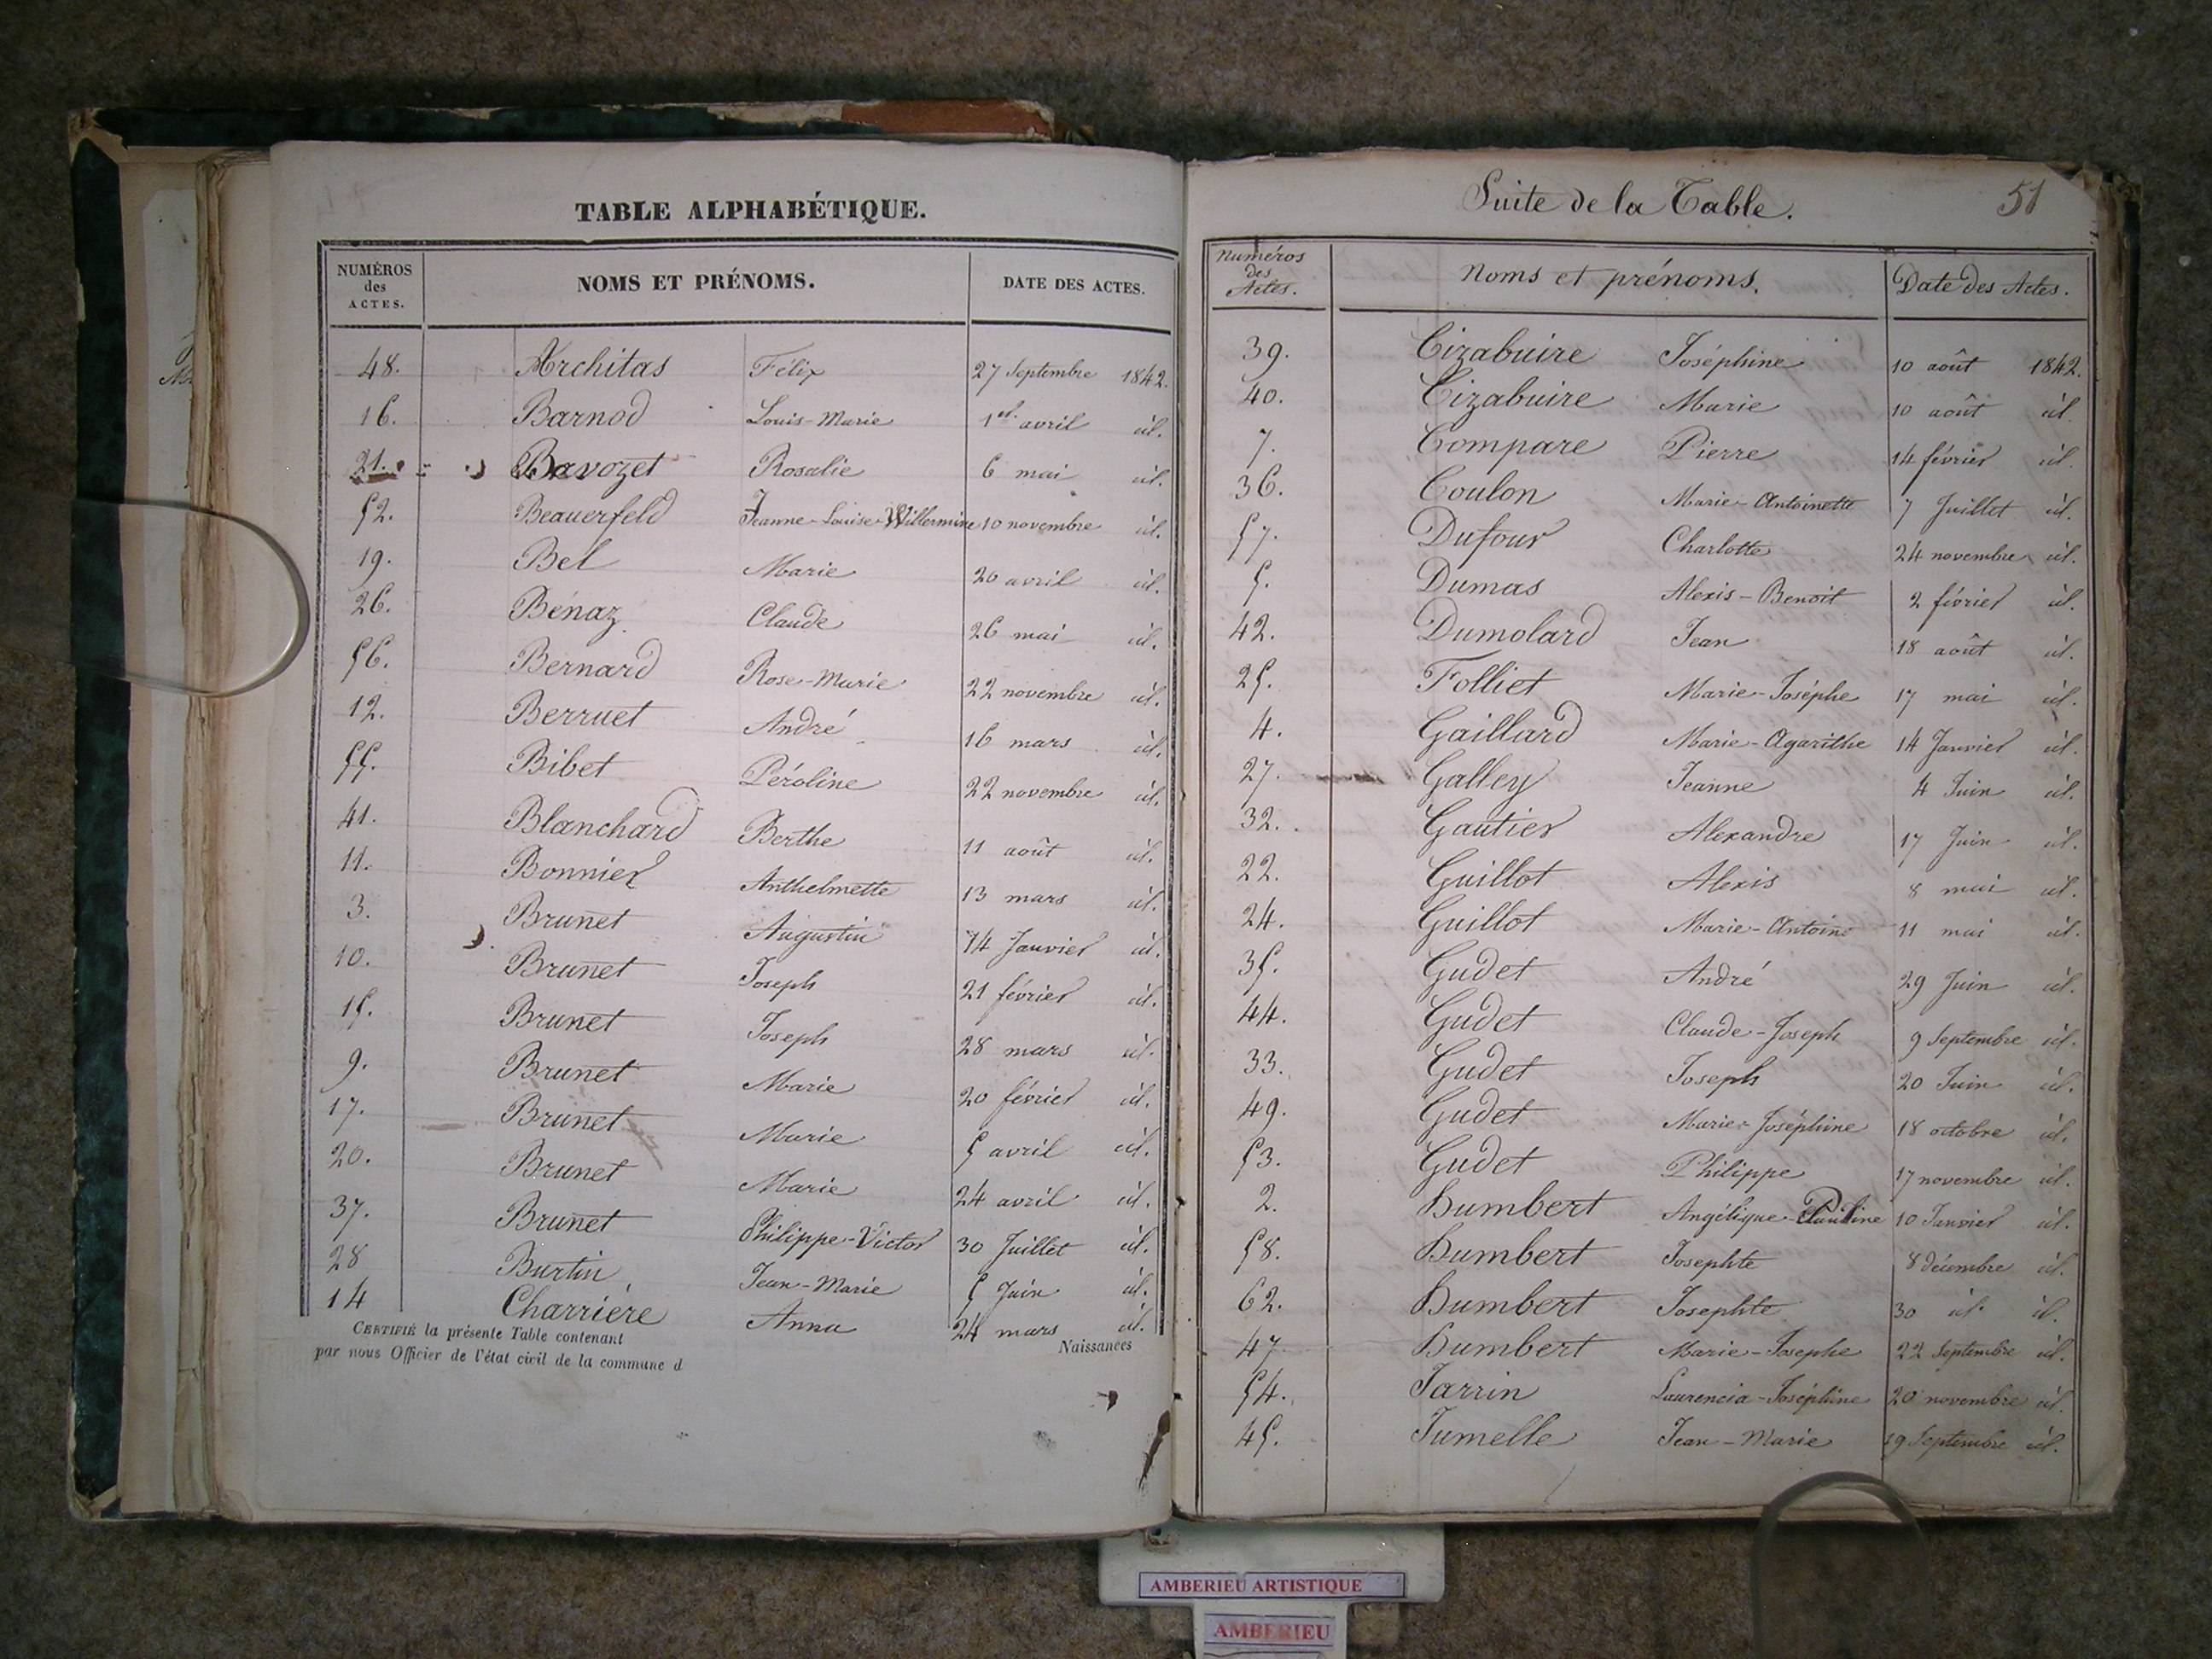 TABLE ALPHABÉTIQUE.
NUMÉROS des ACTES. NOMS ET PRÉNOMS. DATE DES ACTES.
48. Architas Félix 27 Septembre 1842.
16. Barnod Louis-Marie 1er avril id.
21. Bavozet Rosalie 6 mai id.
52. Beauerfeld Jeanne-Louise-Willermine 10 novembre id.
19. Bel Marie 20 avril id.
26. Bénaz Claude 26 mai id.
56. Bernard Rose-Marie 22 novembre id.
12. Berruet André 16 mars id.
55. Bibet Péroline 22 novembre id.
41. Blanchard Berthe 11 août id.
11. Bonnier Anthelmette 13 mars id.
3. Brunet Augustin 14 Janvier id.
10. Brunet Joseph 21 février id.
15. Brunet Joseph 28 mars id.
9. Brunet Marie 20 février id.
17. Brunet Marie 5 avril id.
20. Brunet Marie 24 avril id.
37. Brunet Philippe-Victor 30 Juillet id.
28 Burtin Jean-Marie 5 Juin id.
14 Charrière Anna 24 mars id.
CERTIFIÉ la présente Table contenant Naissances
par nous Officier de l'état civil de la commune d
Suite de la Table. 51
Numéros des Actes. Noms et prénoms. Date des Actes.
39. Cizabuire Joséphine 10 août 1842.
40. Cizabuire Marie 10 août id.
7. Compare Pierre 14 février id.
36. Coulon Marie-Antoinette 7 Juillet id.
57. Dufour Charlotte 24 novembre id.
5. Dumas Alexis-Benoît 2 février id.
42. Dumolard Jean 18 août id.
25. Folliet Marie-Josèphe 17 mai id.
4. Gaillard Marie-Agarithe 14 Janvier id.
27. Galley Jeanne 4 Juin id.
32. Gautier Alexandre 17 Juin id.
22. Guillot Alexis 8 mai id.
24. Guillot Marie-Antoine 11 mai id.
35. Gudet André 29 Juin id.
44. Gudet Claude-Joseph 9 Septembre id.
33. Gudet Joseph 20 Juin id.
49. Gudet Marie-Joséphine 18 octobre id.
53. Gudet Philippe 17 novembre id.
2. Humbert Angélique-Pauline 10 Janvier id.
58. Humbert Josephte 8 décembre id.
62. Humbert Josephte 30 id. id.
47 Humbert Marie-Josephe 22 Septembre id.
54. Jarrin Laurencia-Joséphine 20 novembre id.
45. Jumelle Jean-Marie 19 Septembre id.
AMBERIEU ARTISTIQUE
AMBERIEU